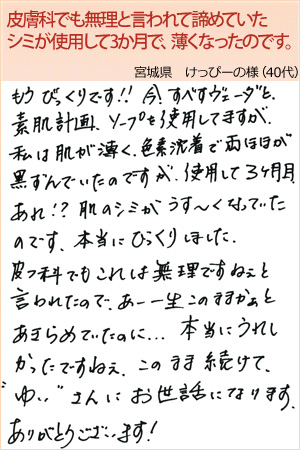 皮膚科でも無理と言われて諦めていた
シミが使用して3か月で、薄くなったのです。
宮城県　けっぴーの様（40代）
もう びっくりです!! 今、すべすヴェーダと、
素肌計画、ソープを使用してますが、
私は肌が薄く、色素沈着で両ほほが
黒ずんでいたのですが、使用して3ヶ月目
あれ!? 肌のシミが うす〜くなっていた
のです、本当にびっくりしました。
皮フ科でもこれは無理ですねぇと
言われたので、あー一生このままかぁと
あきらめていたのに… 本当にうれし
かったですねぇ、このまま続けて、
"ゆい" さんにお世話になります。
ありがとうございます!